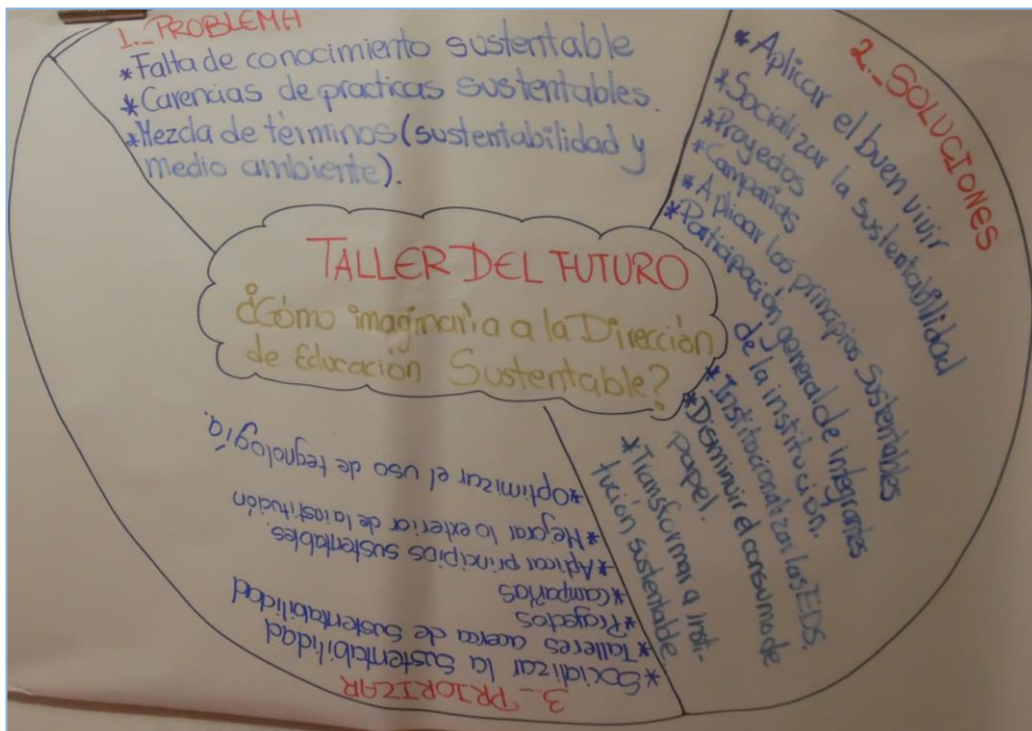 1._ PROBLEMA
*Falta de conocimiento sustentable
*Carencias de practicas sustentables.
*Mezcla de términos (sustentabilidad y
medio ambiente).
TALLER DEL FUTURO
¿Cómo imaginaria a la Dirección
de Educación Sustentable?
2._ SOLUCIONES
*Aplicar el buen vivir
*Socializar la sustentabilidad
*Proyectos
*Campañas
*Aplicar los principios Sustentables
*Participación general de integrantes
de la institución.
*Institucionalizar las EDS.
*Disminuir el consumo de
papel.
*Transformar a insti-
tución sustentable
3._ PRIORIZAR
*Socializar la Sustentabilidad
*Talleres acerca de Sustentabilidad
*Proyectos
*Campañas
*Aplicar principios sustentables.
*Mejorar lo exterior de la institución
*Optimizar el uso de tegnología.